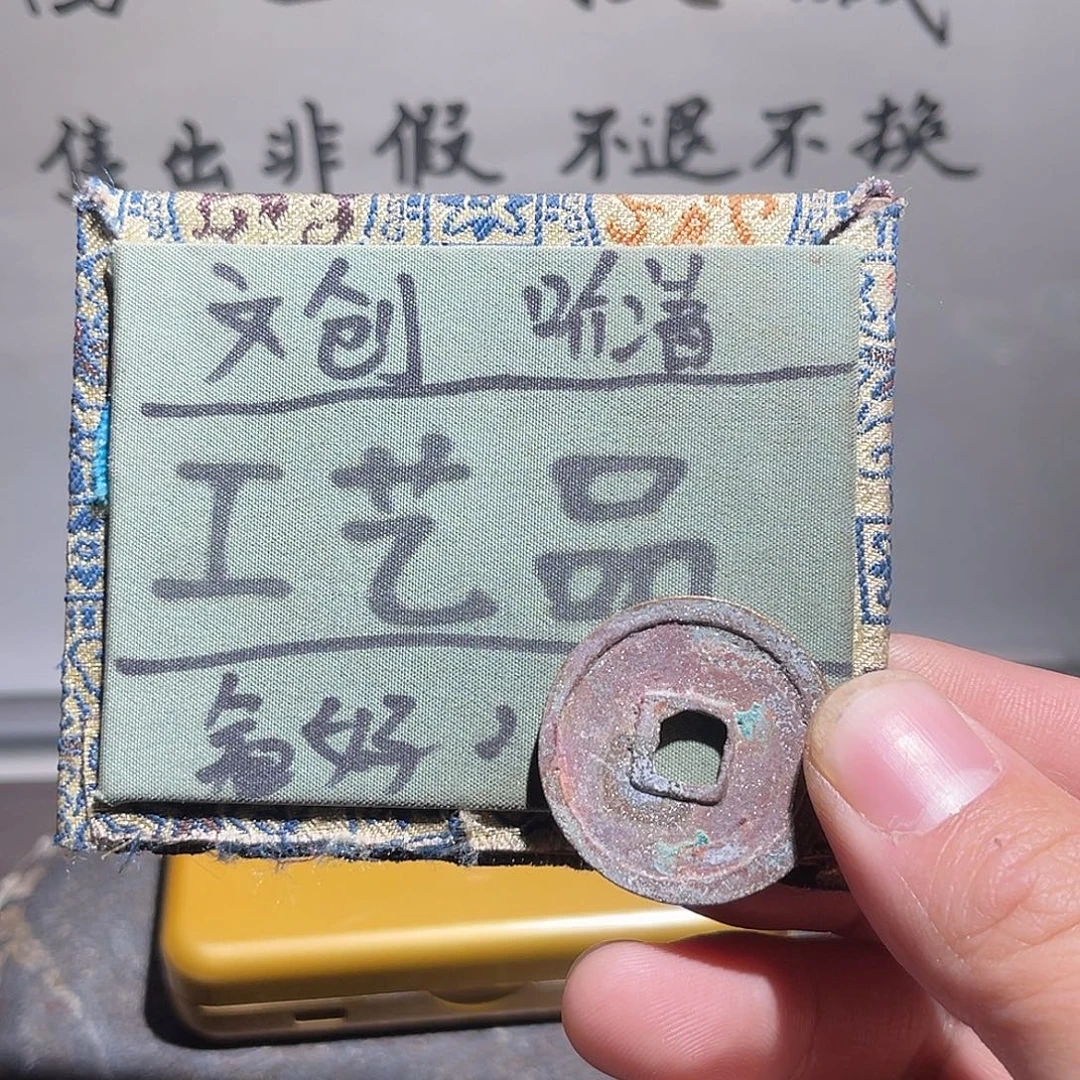 售出非假 不退不换
文创 听清
工艺品
看好，